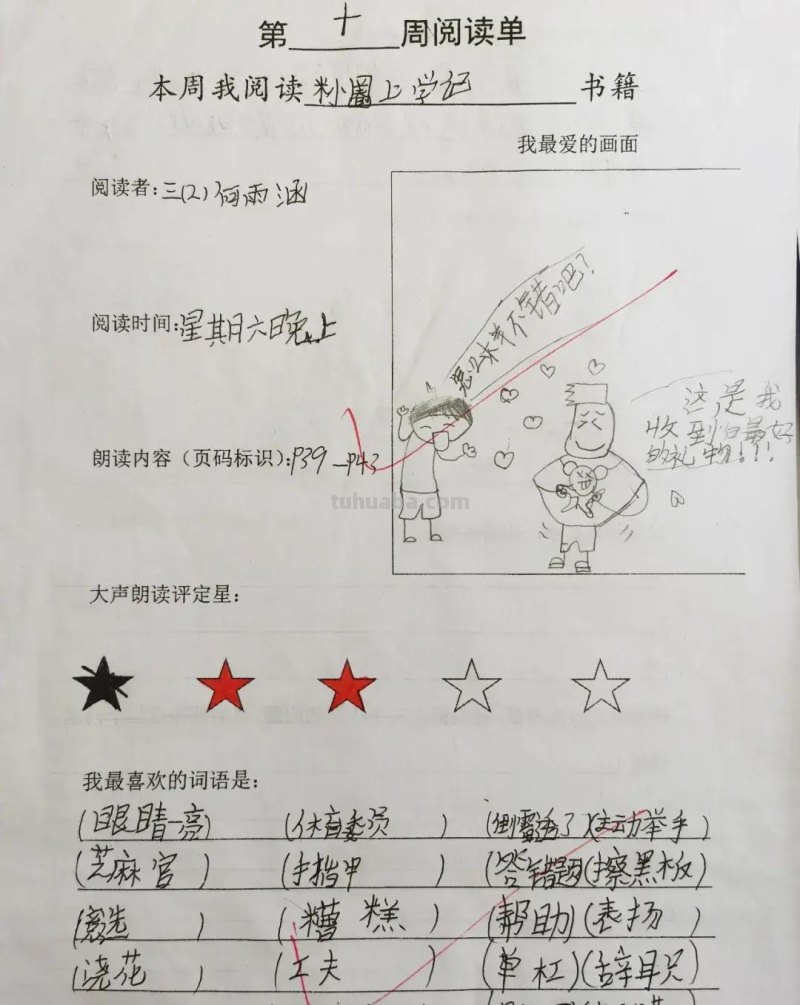 第十周阅读单
本周我阅读米小圈上学记书籍
我最爱的画面
阅读者:三(2)何雨涵
怎么样不错吧?
阅读时间:星期六晚上
这是我
收到最好
的礼物!!!
朗读内容(页码标识):P39—P43
tuhuaba.com
大声朗读评定星:
我最喜欢的词语是:
(眼睛一亮) (体育委员) (倒霉透了)(主动举手)
(芝麻官) (手指甲) (答错题)(擦黑板)
(竞选) (糟糕) (帮助)(表扬)
(浇花) (工夫) (单杠)(辞职)